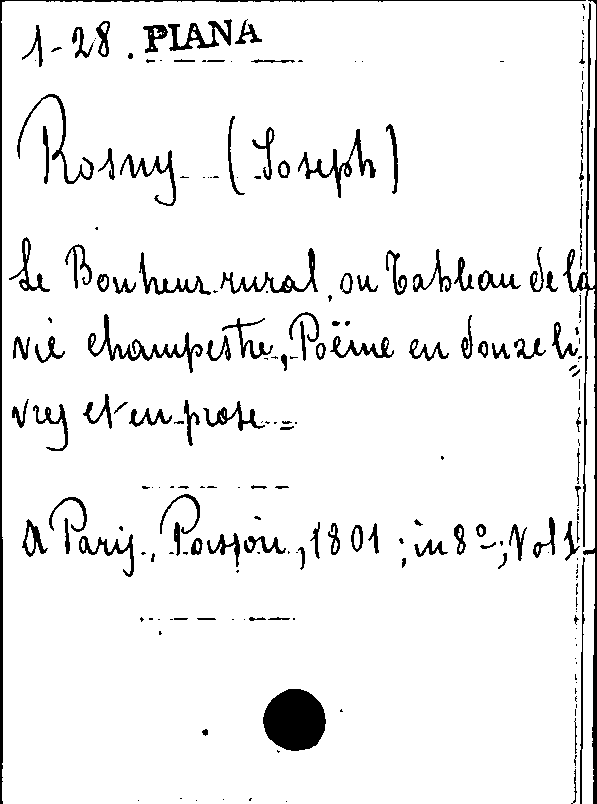 1-28. PIANA
Rosny (Joseph)
Le Bonheur rural, ou Tableau de la
vie champestre, Poëme en douze li=
vres et en prose=
A Paris, Poisson, 1801; in 8º; Vol 1-